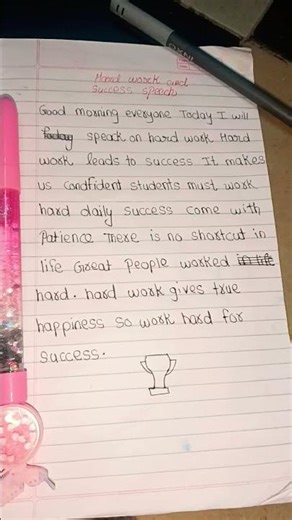 Hard work and
success speech
Good morning everyone Today I will
today speack on hard work Hard
work leads to success It makes
us candfident students must work
hard daily success come with
Patience There is no shortcut in
life Great People worked in life
hard. hard work gives true
happiness so work hard for
success.